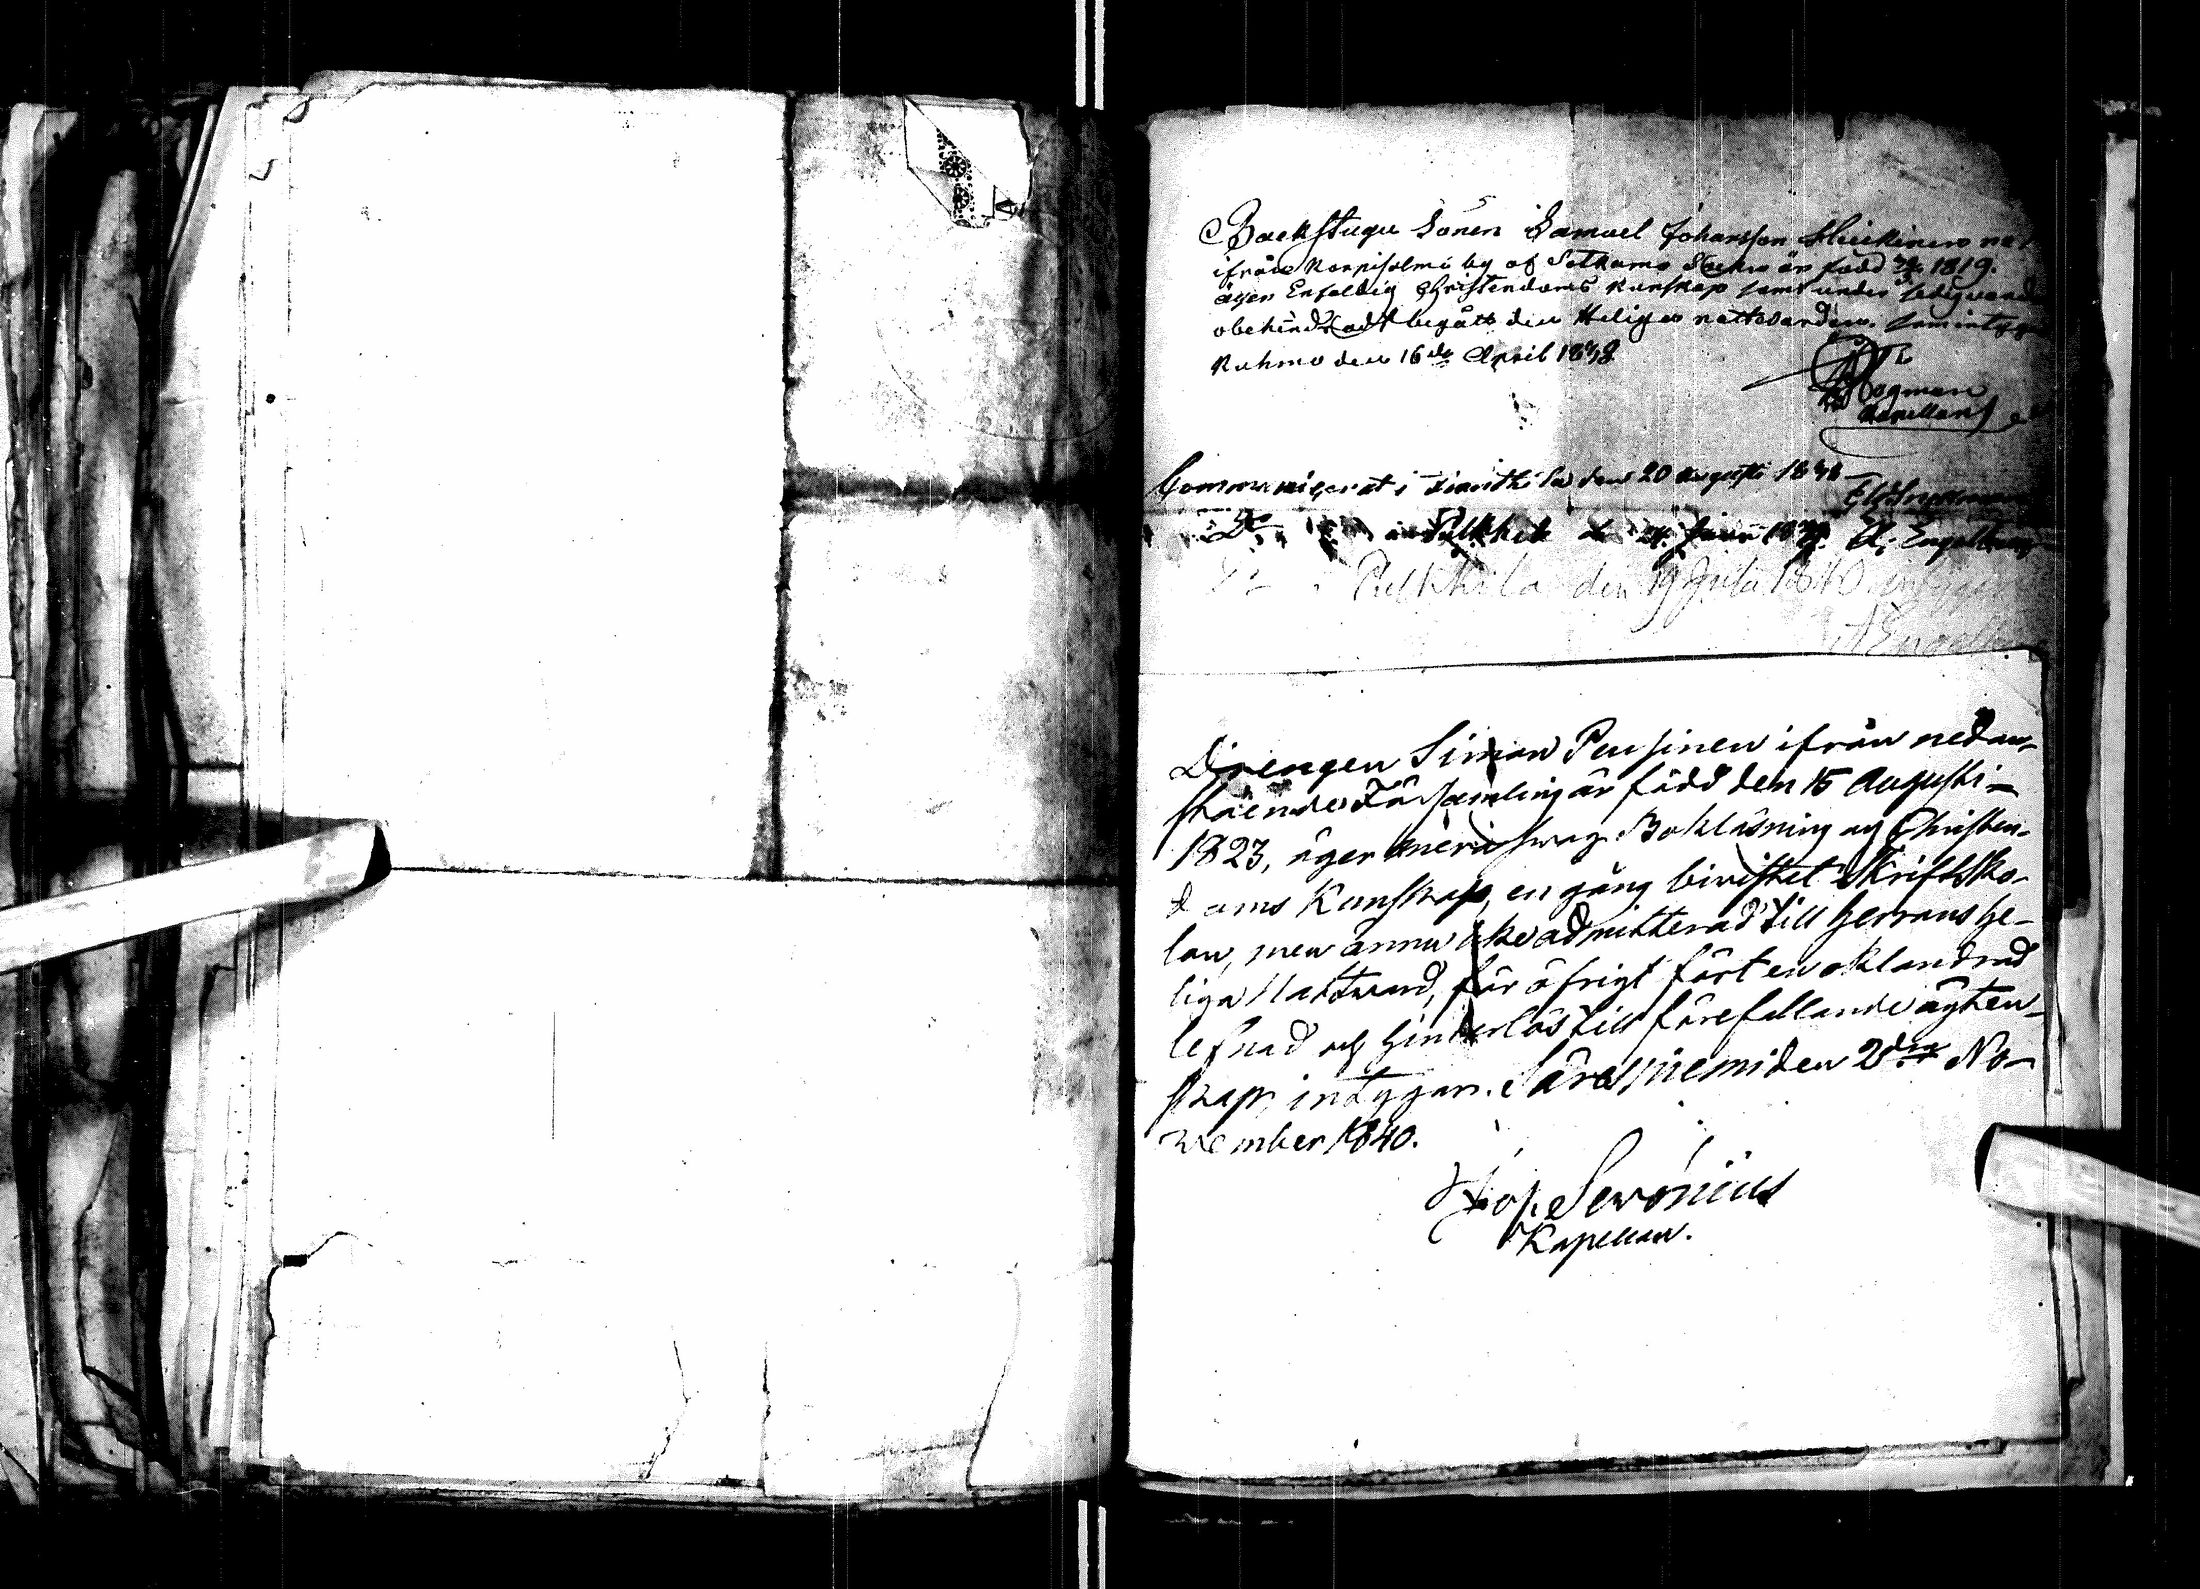 Backstugu Sonen Samuel Johansson Heickinen
ifrån Korpisalmi by af Sotkamo Sockn är född 1819.
äger Enfaldig Christendoms kunskap samt under
obehindradt begått den Helige nattvarden. som intygar
Kuhmo den 16de April 1838
Hogman
Kapellan
Communicerat i den 20 Augusti 1838
Do i Pulkkila d. 24 Juni 1839. A. Engelberg
Do i Pulkkila den 19 Julii 1840 intygar
A Engelberg
Drengen Simon Pensinen ifrån nedan-
stående Församling är född den 15 Augusti
1823, äger swag Bokläsning og Christen-
doms Kunskap, en gång biwistat Skriftsko-
lan, men ännu icke admitterad till Herrans he-
liga Nattward, för öfrigt fört en oklandrad
lefnad och hinderlös till förefallande ägten-
skap, intygar. Säresniemi den 2dra No-
wember 1840.
Joh. Servonius
Kapellan.